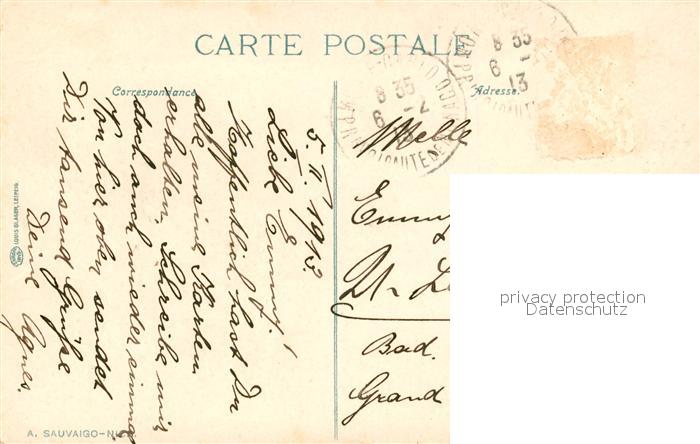 CARTE POSTALE
Correspondance
Adresse.
5. II. 1913.
Liebe Emmy!
Hoffentlich hast Du
alle meine Karten
erhalten. Schreibe mir
doch auch wieder einmal
Von hier oben sendet
Dir tausend Grüße
Deine Agnes.
Melle
Emmy
Bad.
Grand
8 35
6 - 2
8 35
6 -
13
LOUIS GLASER, LEIPZIG.
A. SAUVAIGO-NICE.
privacy protection
Datenschutz